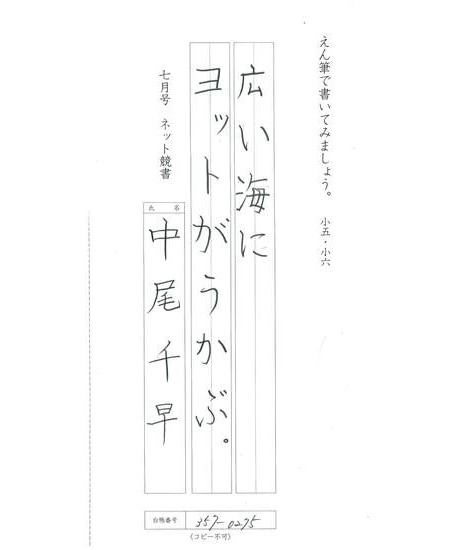 えん筆で書いてみましょう。 小五・小六
広い海に
ヨットがうかぶ。
七月号 ネット競書
氏名
中尾千早
台帳番号 357-0275
(コピー不可)